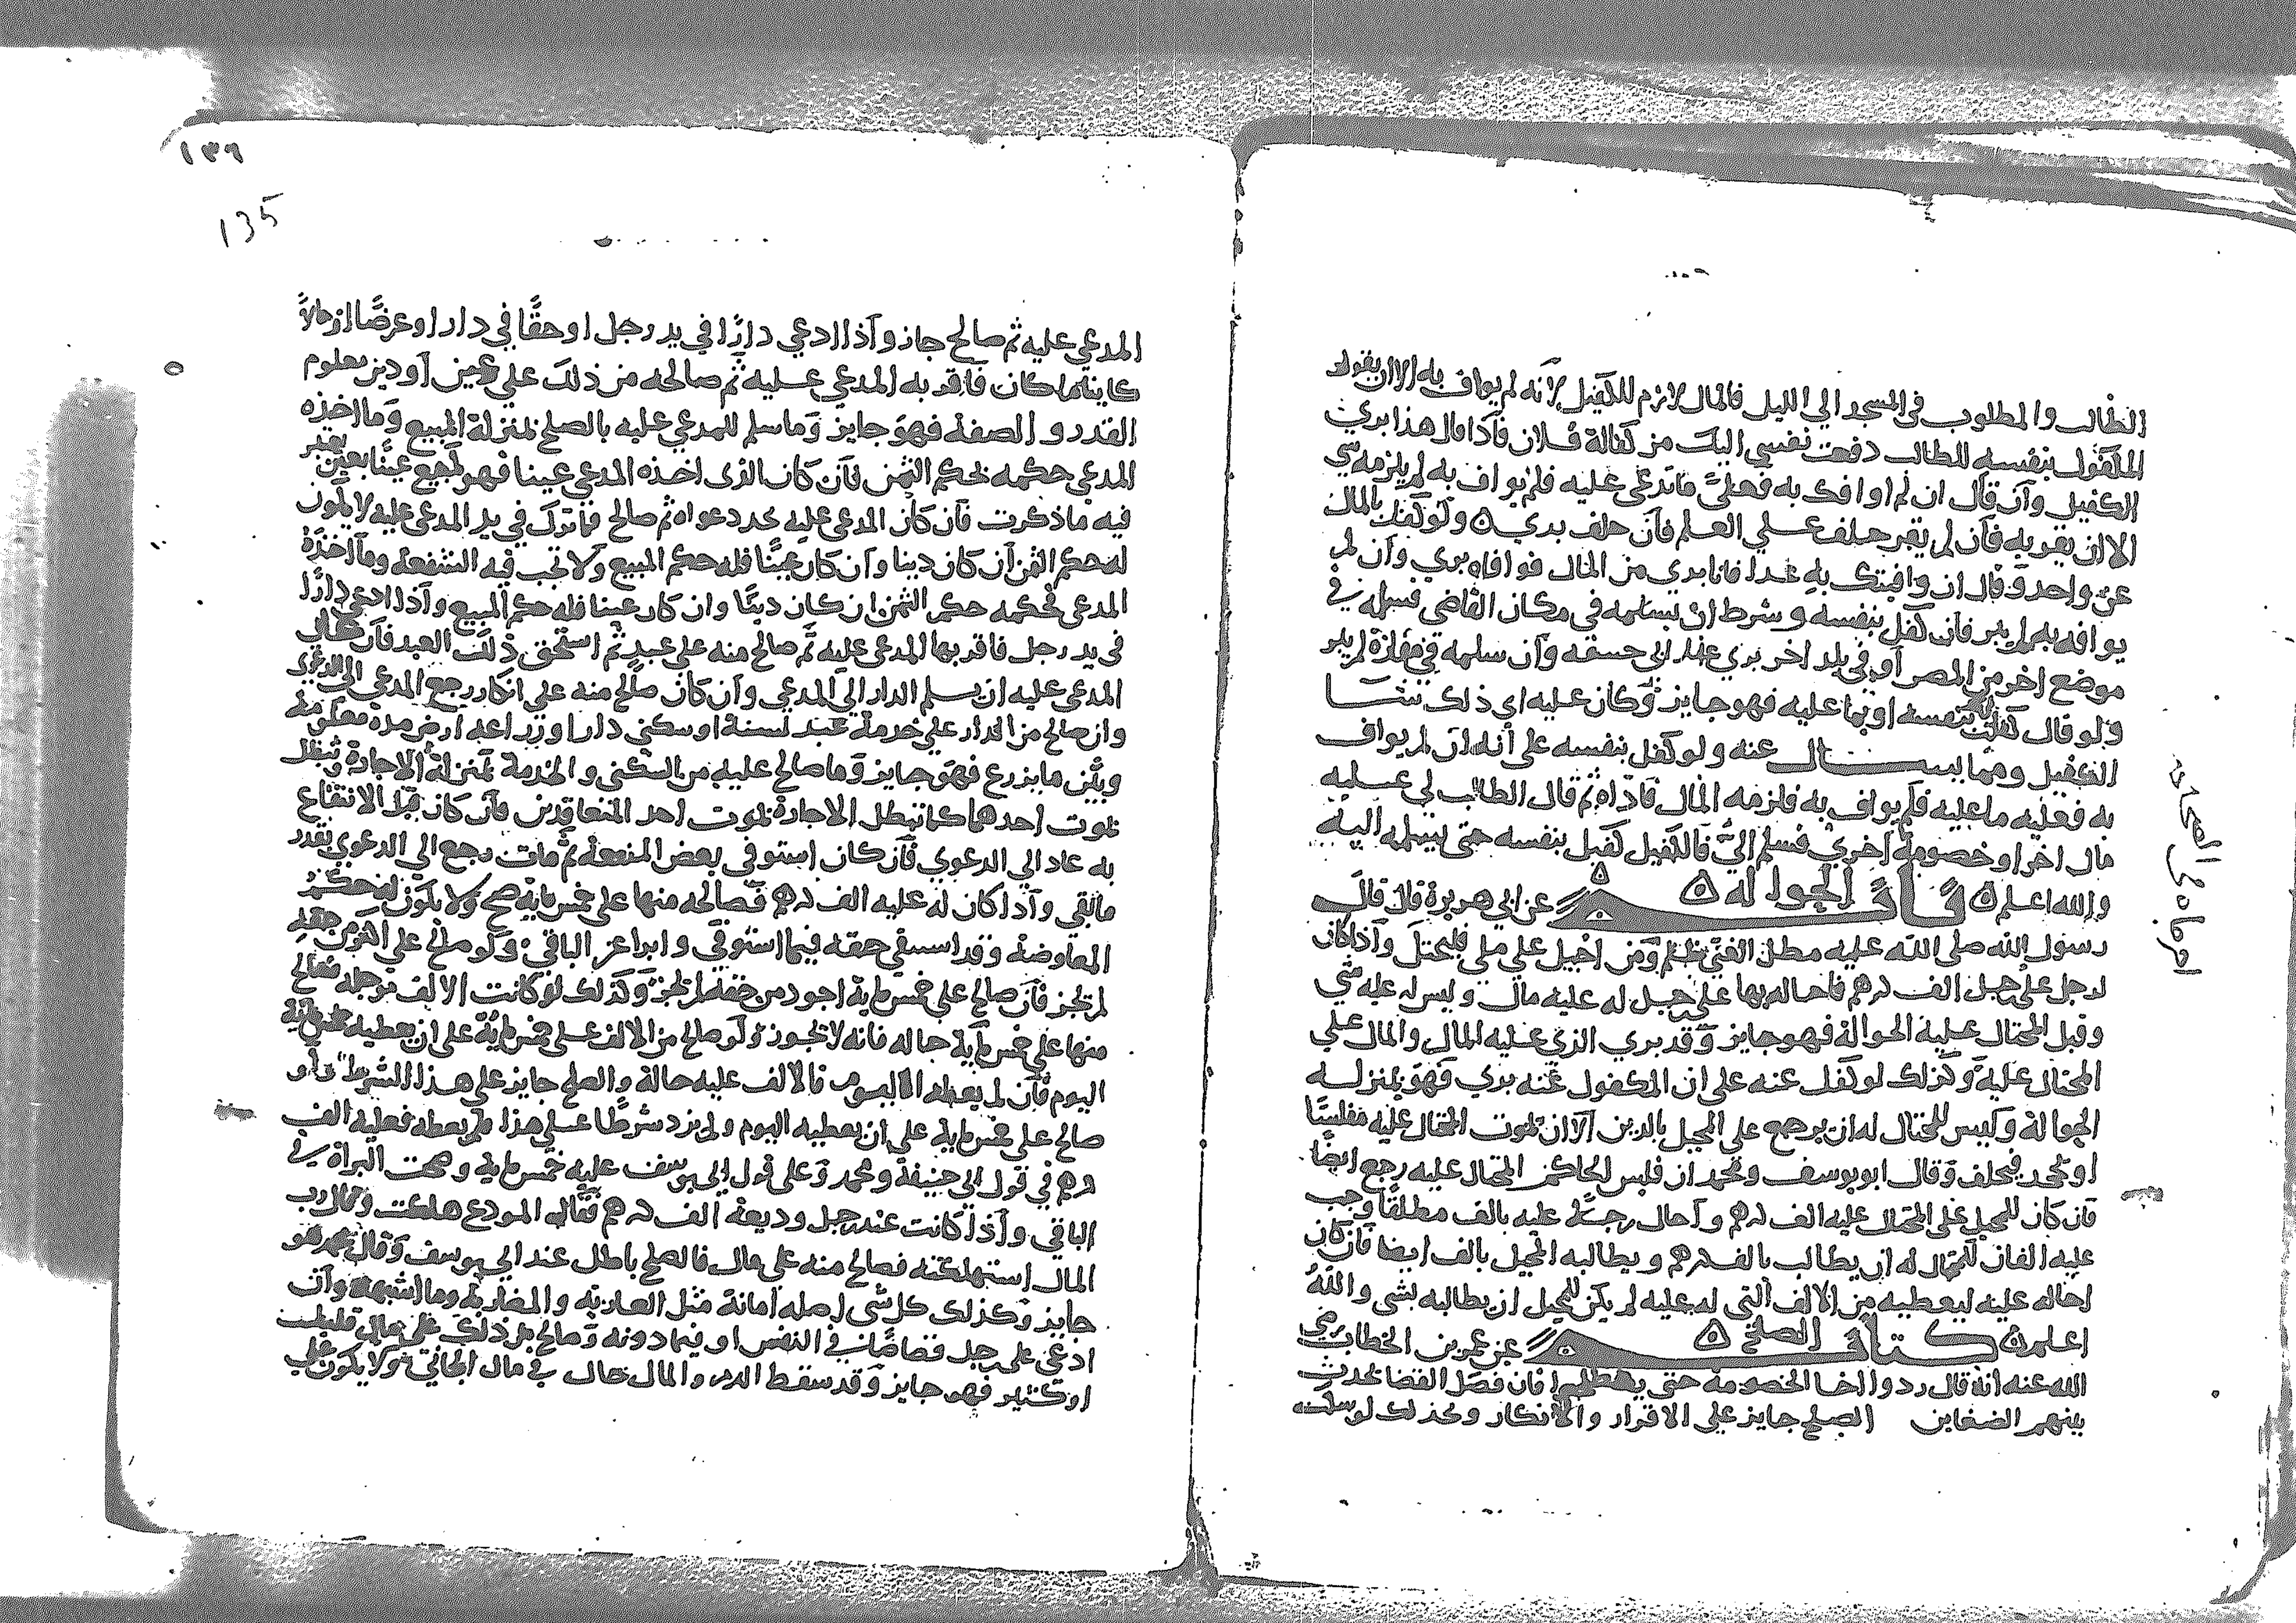 الطالب والمطلوب في المسجد الي الليل فالمال لازم للكفيل لانه لم يواف به الا ان يقول
المكفول بنفسه للطالب دفعت نفسي اليك من كفالة فلان فاذا قال هذا بري
الكفيل وان قال ان لم اوافك به فعليّ ما تدعي عليه فلم يواف به لم يلزمه شي
الا ان يقر به فان لم يقر حلف علي العلم فان حلف بري ولو كفل بالمال
عن واحد وقال ان وافيتك به غدا فانا بري من المال فوافاه بري وان لم
يوافه به لم يبر فان كفل بنفسه وشرط ان يسلمه في مكان القاضي فسلمه في
موضع اخر من المصر او في بلد اخر بري عند ابي حنيفه وان سلمه في مفازة لم يبر
ولو قال كفلت بنفسه او بما عليه فهو جايز وكان عليه اي ذلك شا
الكفيل ومما يسال عنه ولو كفل بنفسه علي أنه ان لم يواف
به فعليه ما عليه فلم يواف به فلزمه المال فاداه ثم قال الطالب لي عليه
مال اخر او خصومة اخري فسلم اليّ فالكفيل كفيل بنفسه حتى يسلمه اليه
والله اعلم كتاب الحواله عن ابي هريرة قال قال
رسول الله صلى الله عليه مطل الغني ظلم ومن احيل على ملي فليحتل واذا كان
لرجل على رجل الف درهم فاحاله بها على رجل له عليه مال وليس له عليه شي
وقبل المحتال عليه الحوالة فهو جايز وقد بري الذي عليه المال والمال علي
المحتال عليه وكذلك لو كفل عنه على ان المكفول عنه بري فهو بمنزلة
الحوالة وليس للمحتال له ان يرجع على المحيل بالدين الا ان يموت المحتال عليه مفلسًا
او يجحد فيحلف وقال ابو يوسف ومحمد ان فلس الحاكم المحتال عليه رجع ايضًا
فان كان للمحيل على المحتال عليه الف درهم واحال رجلا عليه بالف مطلقا وجب
عليه الفان للمحتال له ان يطالب بالف درهم ويطالبه المحيل بالف ايضا فان كان
احاله عليه ليعطيه من الالف التي له عليه لم يكن للمحيل ان يطالبه بشي والله
اعلم كتاب الصلح عن عمر بن الخطاب رضي
الله عنه انه قال ردوا الخصومة حتى يصطلحوا فان فصل القضا يحدث
بينهم الضغاين الصلح جايز علي الاقرار والانكار وكذلك لو سكت
اجرجاه في الصحاح
١٣٦
135
المدعي عليه ثم صالح جاز واذا ادعي دارًا في يد رجل او حقًا في دار او عرضًا او مالاً
كاينا ما كان فاقر به المدعي عليه ثم صالحه من ذلك علي عين او دين معلوم
القدر والصفة فهو جايز وما سلم للمدعي عليه بالصلح بمنزلة المبيع وما اخذه
المدعي حكمه بحكم الثمن فان كان الذي اخذه المدعي عينا فهو كبيع عينًا بعين يعتبر
فيه ما ذكرت فان كان المدعي عليه جحد دعواه ثم صالح فما ترك في يد المدعي عليه لا يكون
له حكم الثمن ان كان دينا وان كان عينًا فله حكم المبيع ولا تجب فيه الشفعة وما اخذه
المدعي فحكمه حكم الثمن ان كان دينًا وان كان عينا فله حكم المبيع واذا ادعي دارًا
في يد رجل فاقر بها المدعي عليه ثم صالح منه على عبد ثم استحق ذلك العبد فان علي
المدعي عليه ان يسلم الدار الي المدعي وان كان صالح منه علي انكار رجع المدعي الي الدعوي
وان صالح من الدار علي خدمة عبد لسنة او سكني دار او زراعه ارض مده معلومة
وبيّن ما يزرع فهو جايز وما صالح عليه من السكنى والخدمة بمنزلة الاجارة وتبطل
بموت احدهما كما تبطل الاجارة بموت احد المتعاقدين فان كان قبل الانتفاع
به عاد الي الدعوي فان كان استوفي بعض المنفعة ثم مات رجع الي الدعوي بقدر
ما بقي واذا كان له عليه الف درهم فصالحه منها على خمس مايه صح ولا يكون له حكم
المعاوضة وقد استبقي حقه فيما استوفي وابرا عن الباقي ولو صالح علي اكثر من حقه
لم يجز فان صالح على خمس ماية اجود من حقه لم يجز وكذلك لو كانت الالف موجله فصالح
منها على خمس ماية حاله فانه لا يجوز ولو صالح من الالف على خمس ماية على ان يعطيه خمس ماية
اليوم فان لم يعطه اليوم فالالف عليه حالة والصلح جايز على هذا الشرط ولو
صالح على خمس ماية على ان يعطيه اليوم ولم يزد شرطا على هذا ولم يعطه فعليه الف
درهم في قول ابي حنيفة ومحمد وعلى قول ابي يوسف عليه خمس ماية وصحت البراة في
الباقي واذا كانت عند رجل وديعة الف درهم فقال المودع هلكت وقال رب
المال استهلكته فصالح منه على مال فالصلح باطل عند ابي يوسف وقال محمد هو
جايز وكذلك كل شي اصله امانة مثل العارية والمضاربة وما اشبهه وان
ادعي على رجل قصاصًا في النفس او فيما دونه وصالح من ذلك على مال قليل
او كثير فهو جايز وقد سقط الدم والمال حال في مال الجاني ولا يكون علي